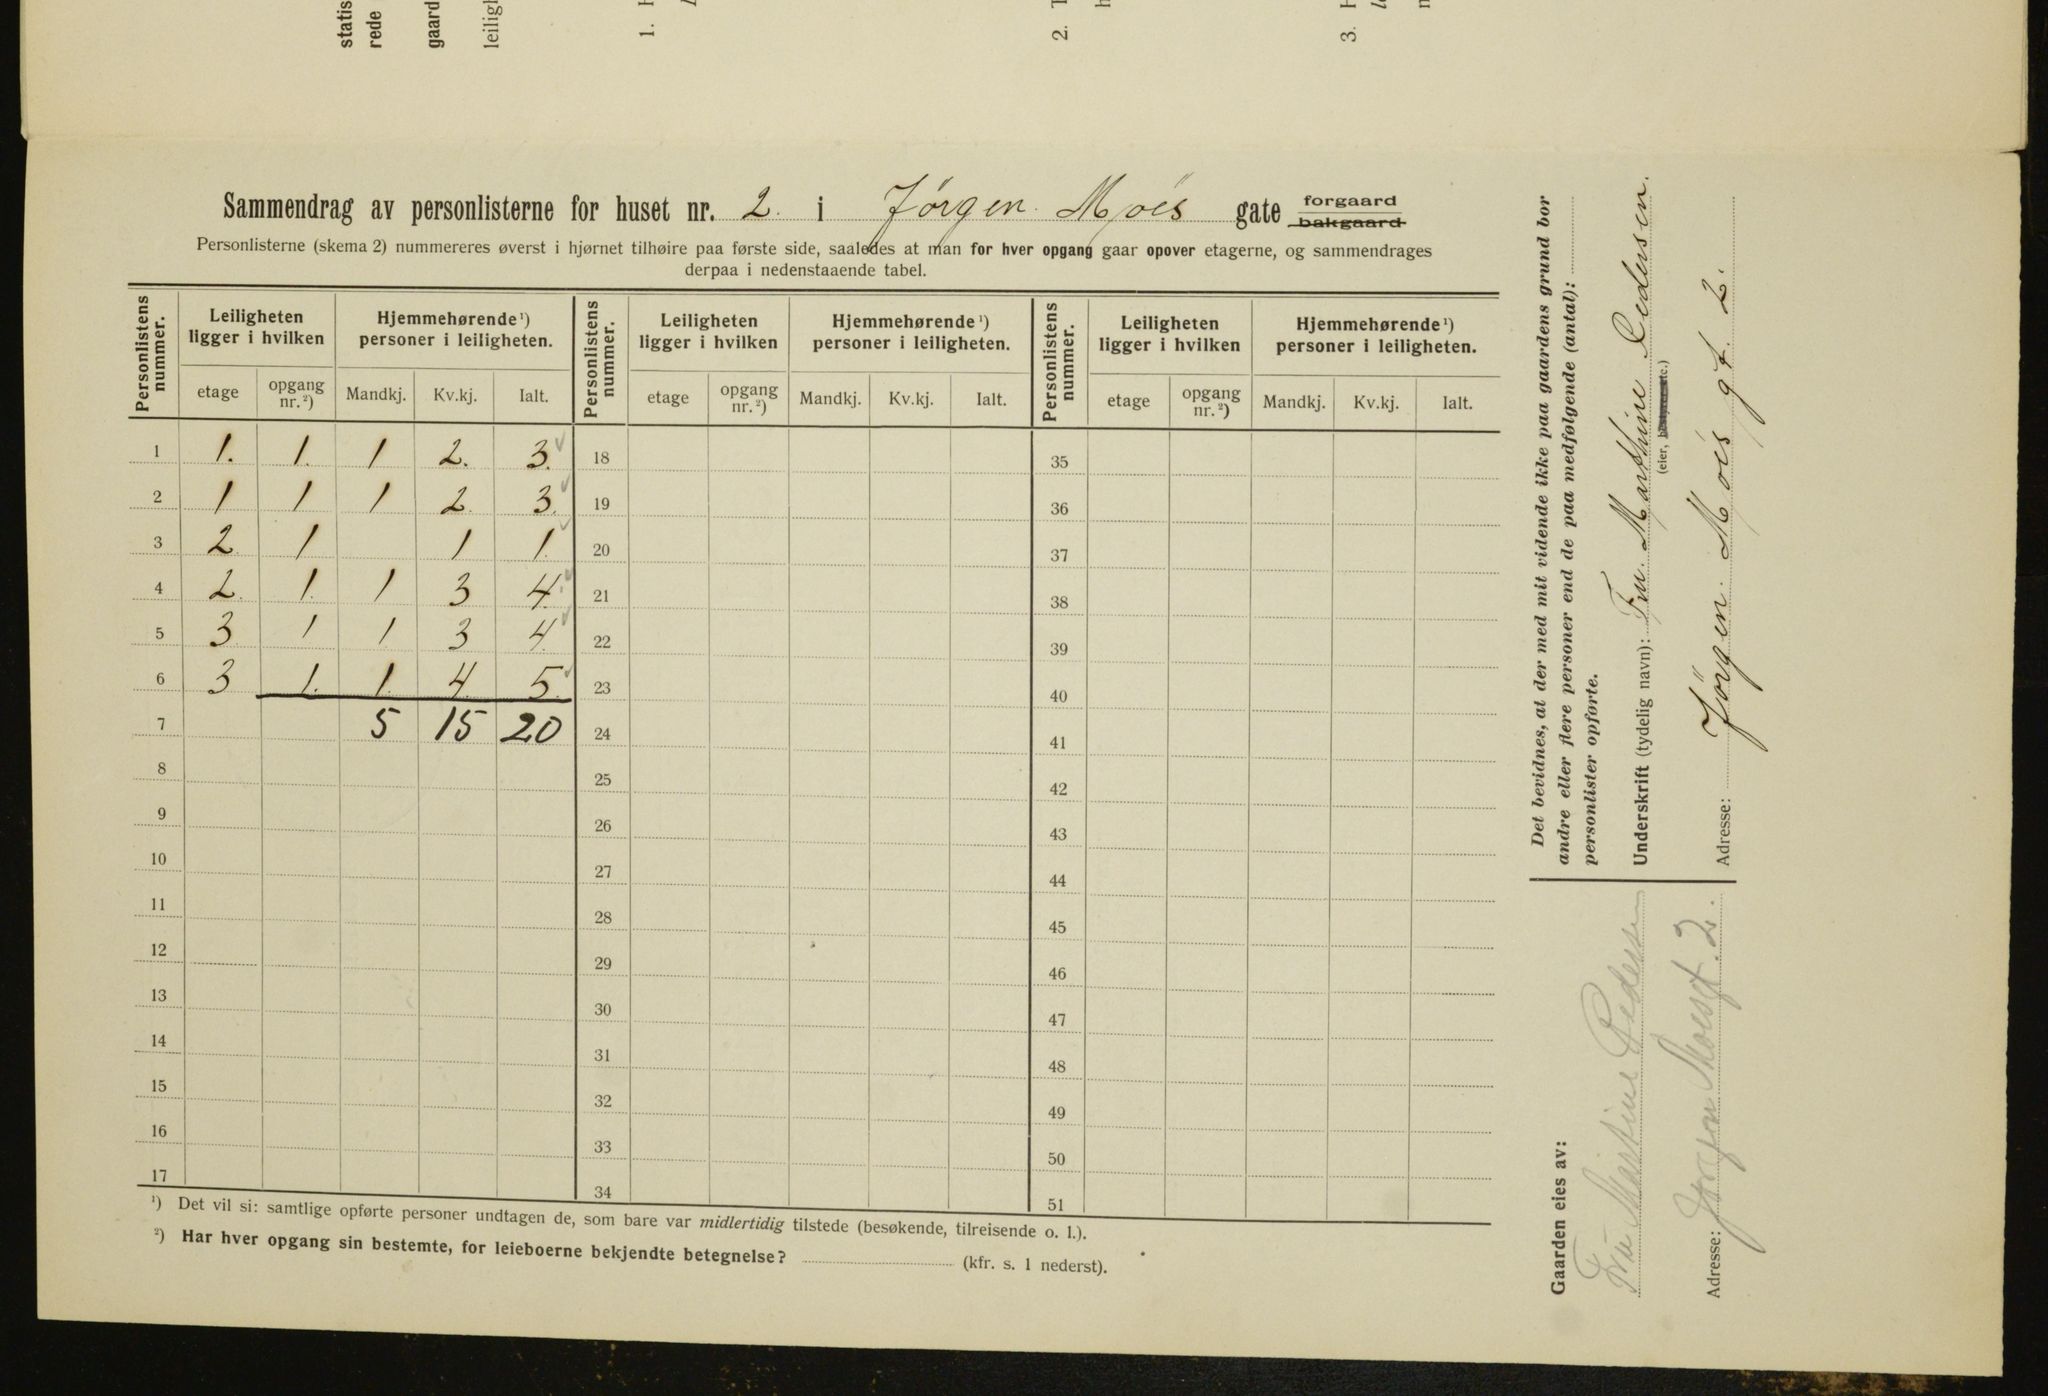 statis
rede
gaard
leiligh
1. H
2. T
h
3. H
Sammendrag av personlisterne for huset nr. 2. i Jørgen Moes gate forgaard ~~bakgaard~~
Personlisterne (skema 2) nummereres øverst i hjørnet tilhøire paa første side, saaledes at man for hver opgang gaar opover etagerne, og sammendrages
derpaa i nedenstaaende tabel.
Personlistens nummer. Leiligheten ligger i hvilken Hjemmehørende ¹) personer i leiligheten. Personlistens nummer. Leiligheten ligger i hvilken Hjemmehørende ¹) personer i leiligheten. Personlistens nummer. Leiligheten ligger i hvilken Hjemmehørende ¹) personer i leiligheten.
etage opgang nr. ²) Mandkj. Kv.kj. Ialt. etage opgang nr. ²) Mandkj. Kv.kj. Ialt. etage opgang nr. ²) Mandkj. Kv.kj. Ialt.
1 1. 1. 1 2. 3. 18 35
2 1 1 1 2 3. 19 36
3 2 1 1 1. 20 37
4 2 1. 1 3 4. 21 38
5 3 1 1 3 4. 22 39
6 3 1. 1. 4 5. 23 40
7 5 15 20 24 41
8 25 42
9 26 43
10 27 44
11 28 45
12 29 46
13 30 47
14 31 48
15 32 49
16 33 50
17 34 51
¹) Det vil si: samtlige opførte personer undtagen de, som bare var midlertidig tilstede (besøkende, tilreisende o. l.).
²) Har hver opgang sin bestemte, for leieboerne bekjendte betegnelse? (kfr. s. 1 nederst).
Det bevidnes, at der med mit vidende ikke paa gaardens grund bor
andre eller flere personer end de paa medfølgende (antal):
personlister opførte.
Underskrift (tydelig navn): Fru. Marthine Pedersen.
(eier, ~~bestyrer~~ etc.)
Adresse: Jørgen. Moes gt. 2.
Gaarden eies av:
Fru Marthine Pedersen
Adresse: Jørgen Moesgt. 2.